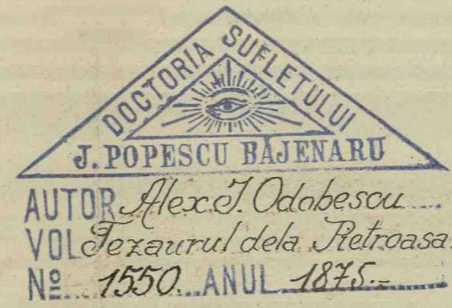 DOCTORIA SUFLETULUI
J. POPESCU BĂJENARU
AUTOR Alex. J. Odobescu
VOL Tezaurul dela Pietroasa.
Nº 1550 ANUL 1875.-